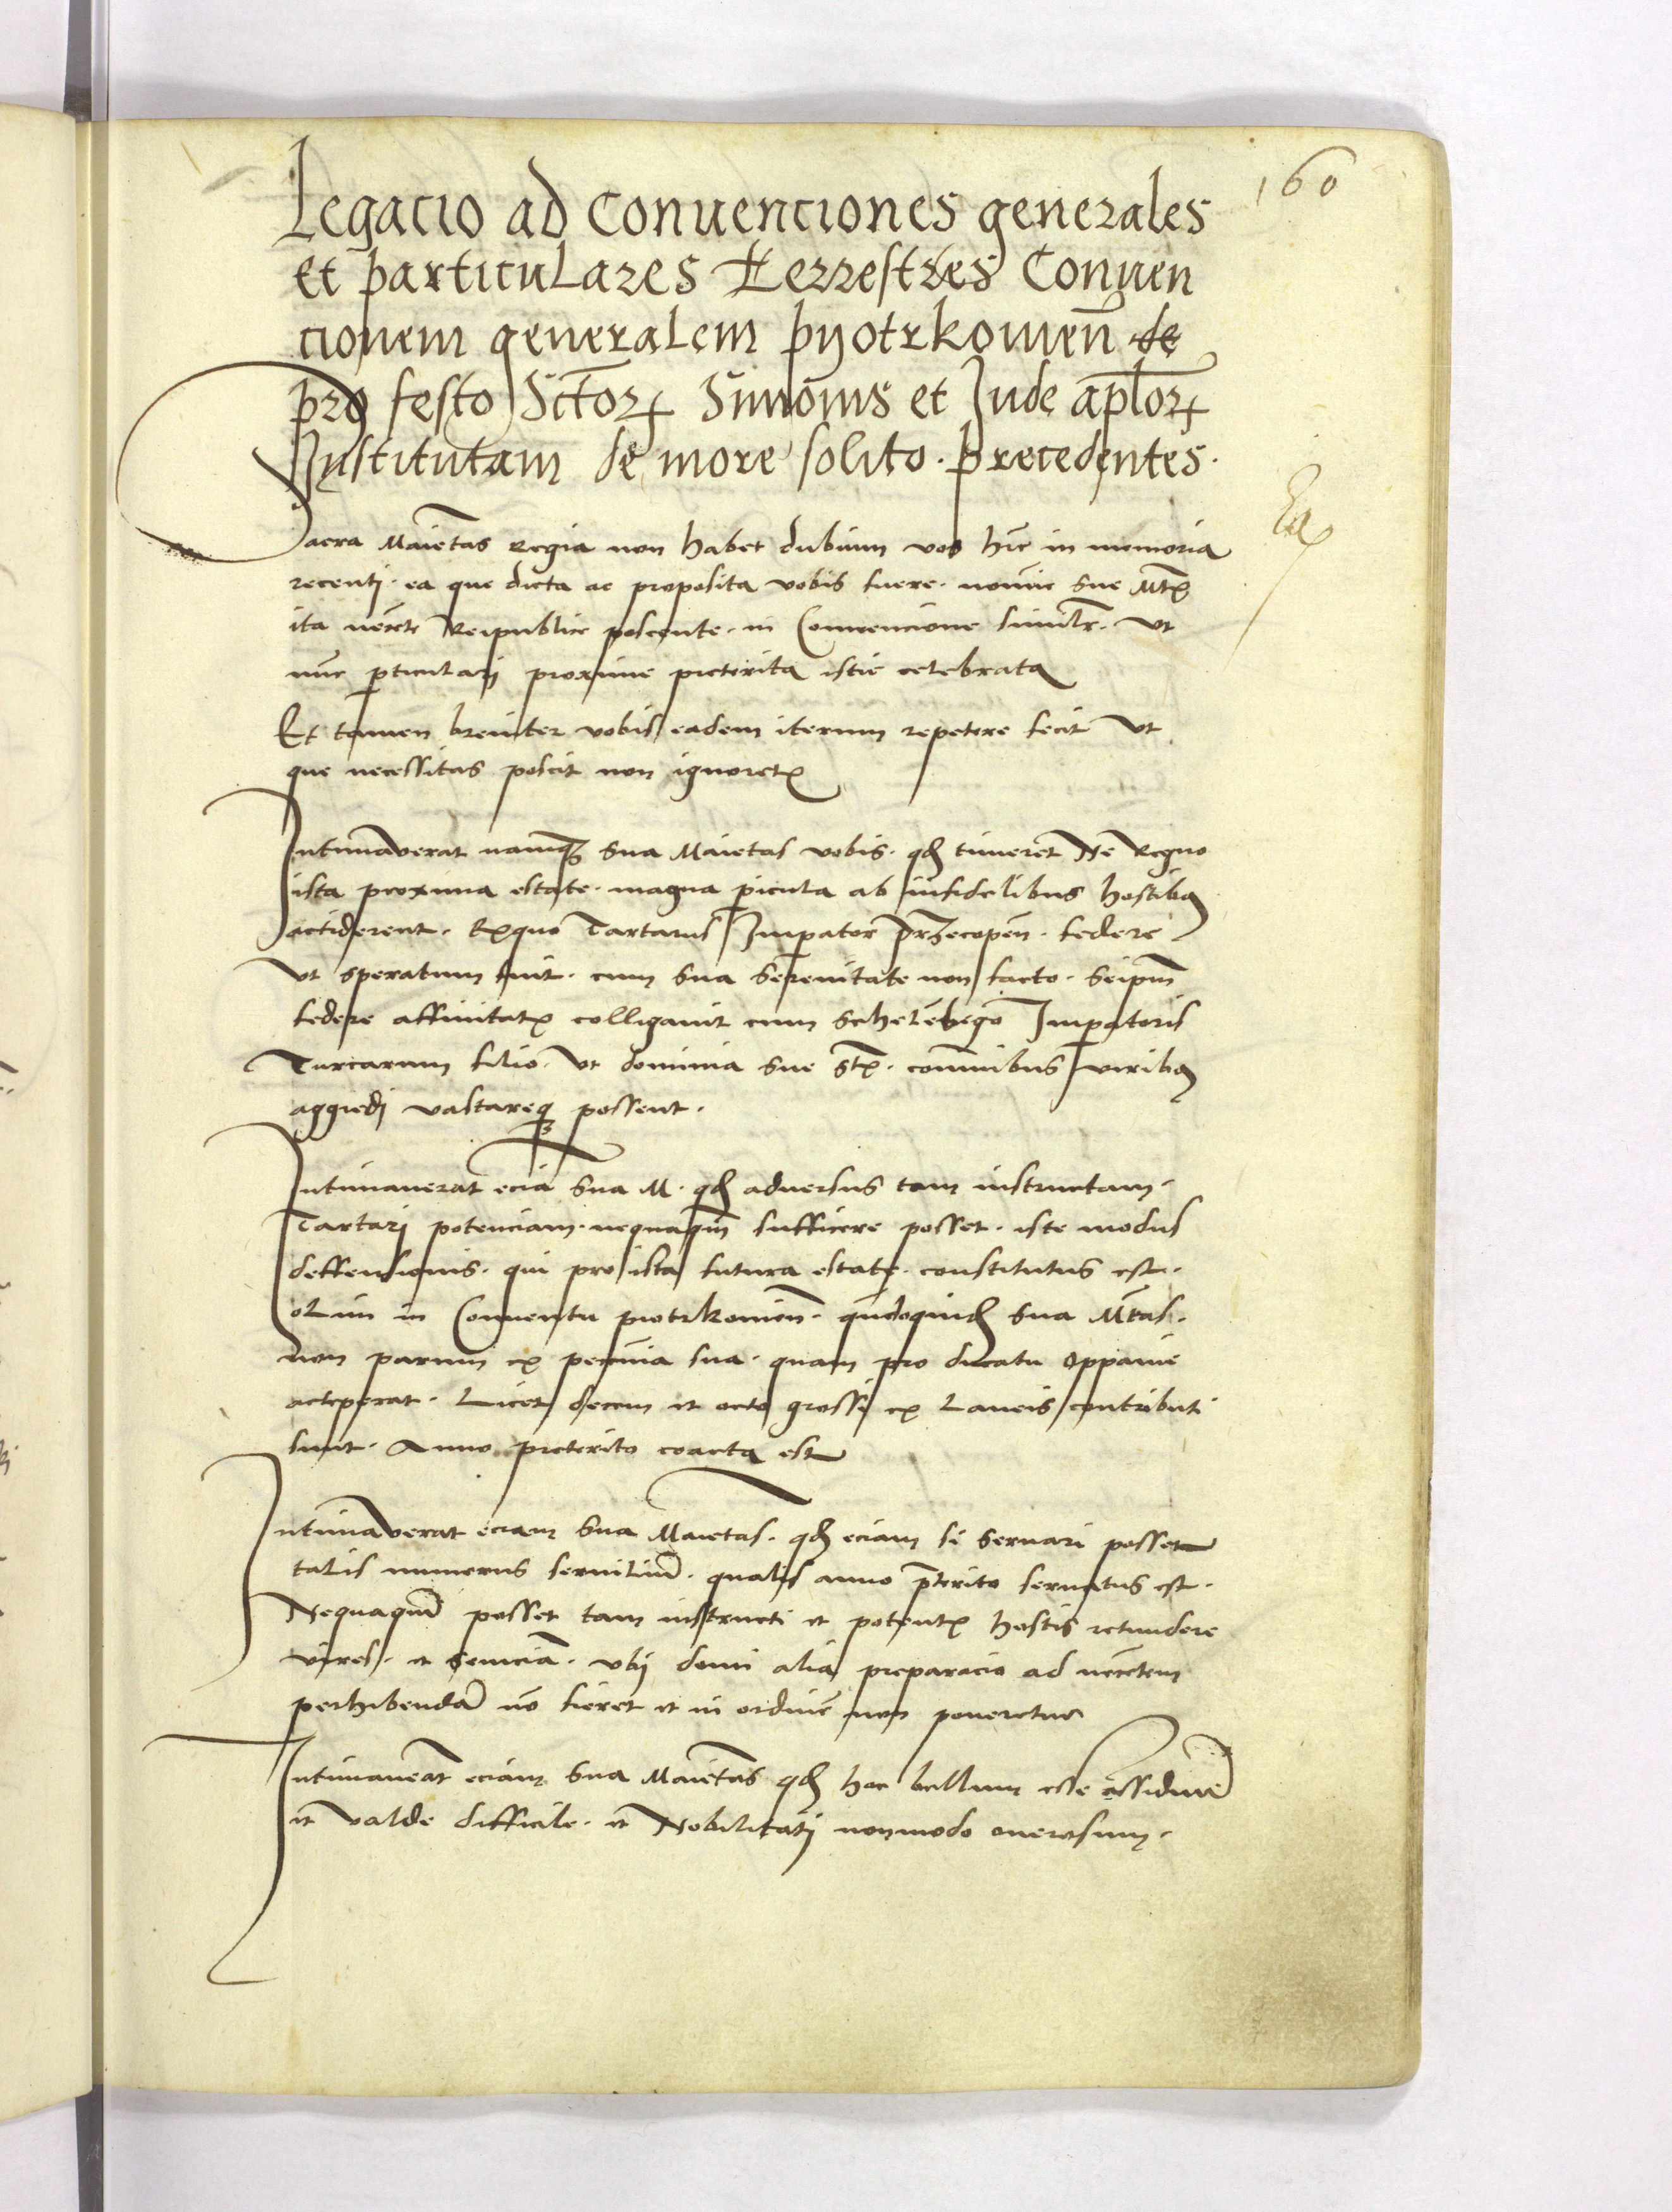 160
Legacio ad Conuenciones generales
et particulares terrestres Conuen
cionem generalem pyotrkouien̄ de
pro festo Sctōrꝝ Simonis et Jude apl̄orꝝ
Institutam de more solito precedentes.
Sacra Maiēstas Regia non habet dubium vos hīc in memoria
recenti. ea que dicta ac proposita vobis fuere. noīe sue Mtꝭ
ita necēte Reipublice poscente. in Conuencione simil̄r. vt
nūc ꝑticulari proxime preterita istic celebrata
Et tamen breuiter vobis eadem iterum repetere fecit vt
que necessitas poscit non ignoretꝭ
Intimauerat namqꝫ Sua Maiestas vobis. qd timeret Ne Regno
ista proxima estate. magna ꝑicula ab infidelibus hostibꝰ
acciderent. Exquo Tartarus Imꝑator Przecopen̄. federe
vt speratum fuit. cum Sua Serenitate non facto. Seipm̄
federe affinitatꝭ colligauit cum Imꝑatoris
Turcarum filio. vt dominia Sue Stꝭ. coībus viribꝰ
aggredi vastareqꝫ possent.
Intimauerat eciā Sua M. qd aduersus tam instructam.
Tartari potenciam. nequaqm̄ sufficere posset. iste modus
deffensionis. qui pro ista futura estate. constitutus est.
olim in Conuentu piotrkouien̄. qn̄doquid Sua Mtās.
non parum ex pecunia sua. quam pro ducatu Oppauie
acceperat. Licet decem et octo grossi ex Laneis contributi
sunt. Anno preterito coacta est
Intimauerat eciam Sua Maiestas. qd eciam si seruari posset
talis numerus seruiliū. qualis anno p̄terito seruatus est.
Nequaquā posset tam instructi et potentꝭ hostis retundere
vires. et seuiciā. vbi domi alia preparacio ad necētem
perhibendā nō fieret et in ordinē non poneretur
Intimauerat eciam Sua Maiēstas qd hoc bellum esse assiduū
et valde difficile. et Nobilitati nonmodo onerosum.